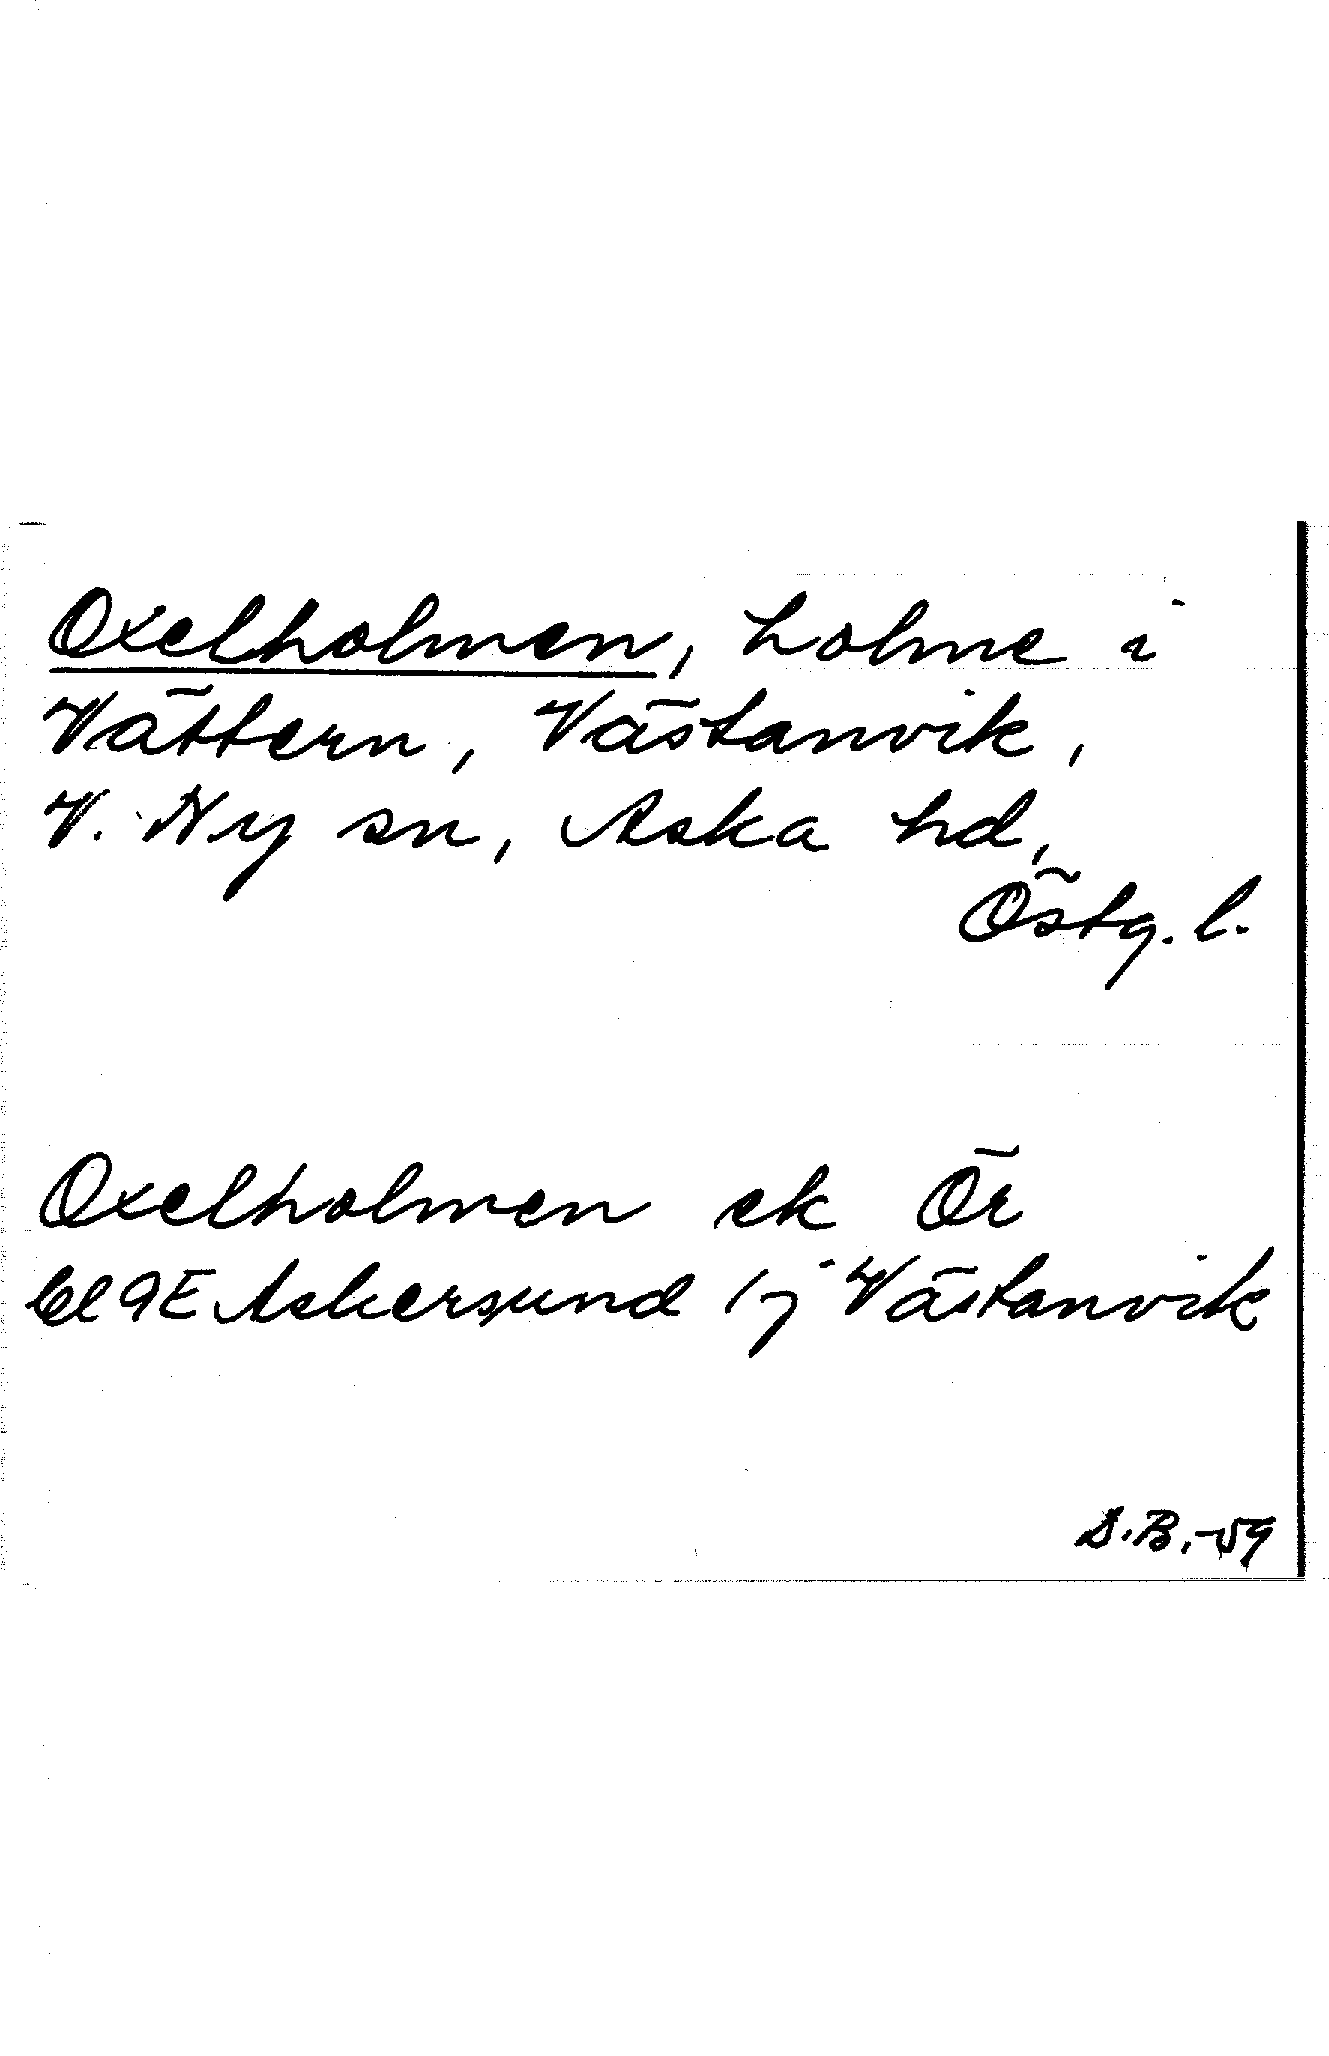 Oxelholmen, holme i
Vättern, Västanvik,
V. Ny sn, Aska hd,
Östg. l.
Oxelholmen ek Ör
bl 9E Askersund Ij Västanvik
S.B.,-59